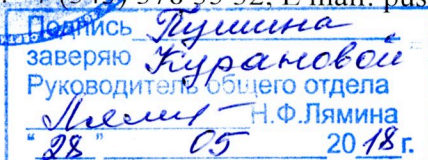 E mail: pus
Подпись Пушина
заверяю Курановой
Руководитель общего отдела
Н.Ф.Лямина
"28" 05 2018 г.